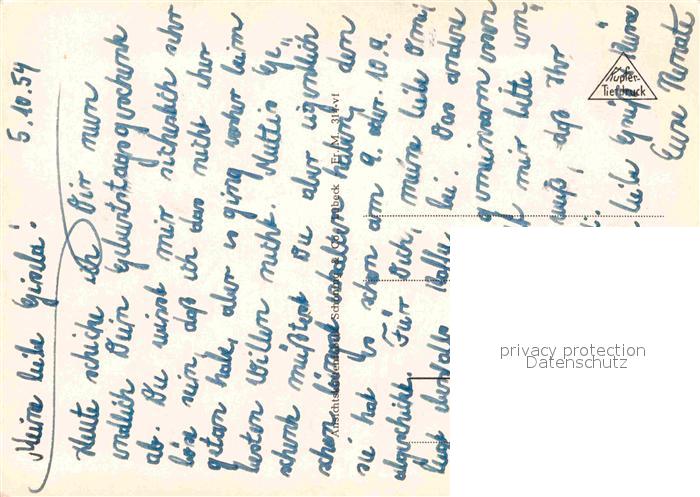 5.10.54
Meine liebe Gisela!
Heute schicke ich Dir nun
endlich Dein Geburtstagsgeschenk
ab. Du wirst mir sicherlich sehr
böse sein, daß ich das nicht eher
getan habe, aber es ging vorher beim
besten Willen nicht. Mutti's Ge-
schenk müßtest Du aber eigentlich
schon längst erhalten haben, denn
sie hat es schon am 9. oder 10.9.
abgeschickt. Für Dich, meine liebe Omi
liegt ebenfalls bei. Das andre
gemeinsam von
mir bitte um
muß, daß Ihr
liebe Grüße Eure
Eure Renate
Kupfer-
Tiefdruck
Ansichtskartenverlag Schöning & Co., Lübeck Er M. 314vf
privacy protection
Datenschutz